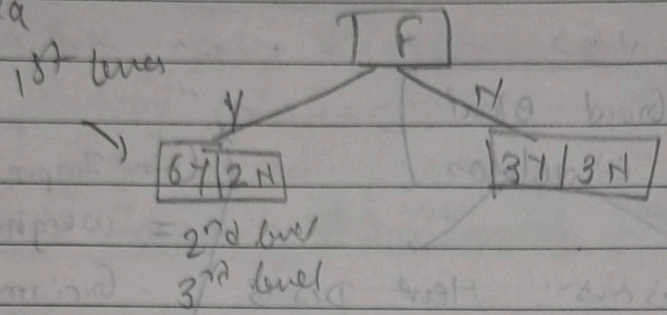 a
F
1st level
Y N
6Y 2N 3Y 3N
2nd level
3rd level